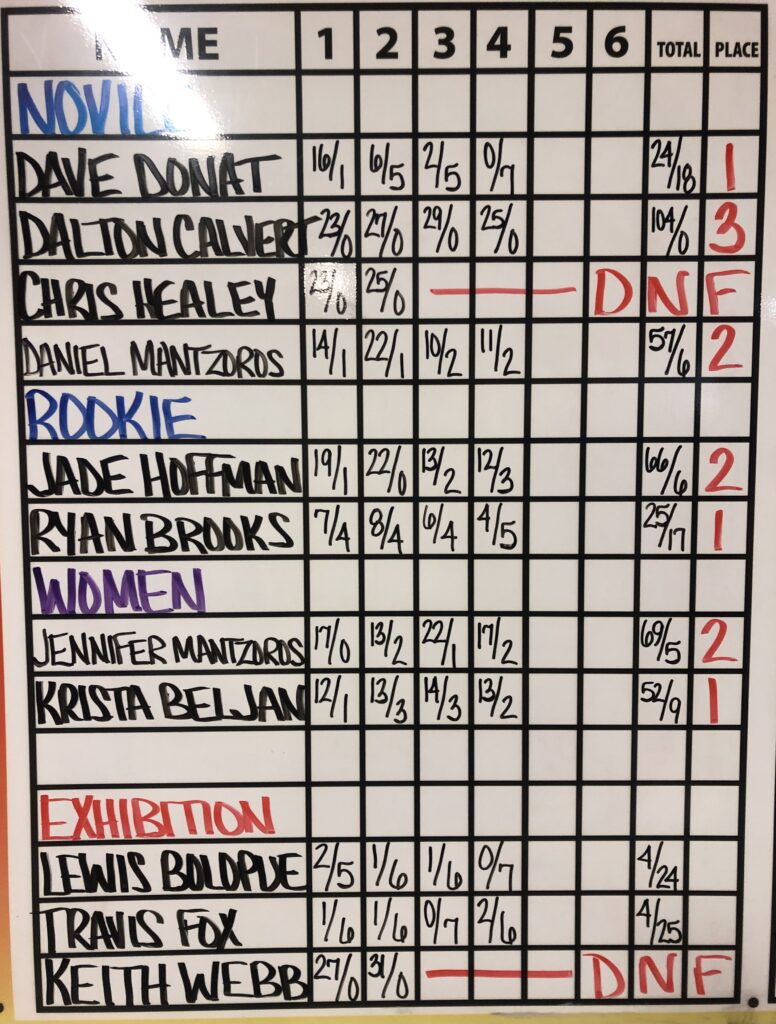 NAME 1 2 3 4 5 6 TOTAL PLACE
NOVICE
DAVE DONAT 16/1 6/5 2/5 0/7 24/18 1
DALTON CALVERT 23/0 27/0 29/0 25/0 104/0 3
CHRIS HEALEY 23/0 25/0 — — — DNF
DANIEL MANTZOROS 14/1 22/1 10/2 11/2 57/6 2
ROOKIE
JADE HOFFMAN 19/1 22/0 13/2 12/3 66/6 2
RYAN BROOKS 7/4 8/4 6/4 4/5 25/17 1
WOMEN
JENNIFER MANTZOROS 17/0 13/2 22/1 17/2 69/5 2
KRISTA BELJAN 12/1 13/3 14/3 13/2 52/9 1
EXHIBITION
LEWIS BOLOPUE 2/5 1/6 1/6 0/7 4/24
TRAVIS FOX 1/6 1/6 0/7 2/6 4/25
KEITH WEBB 27/0 31/0 — — — DNF